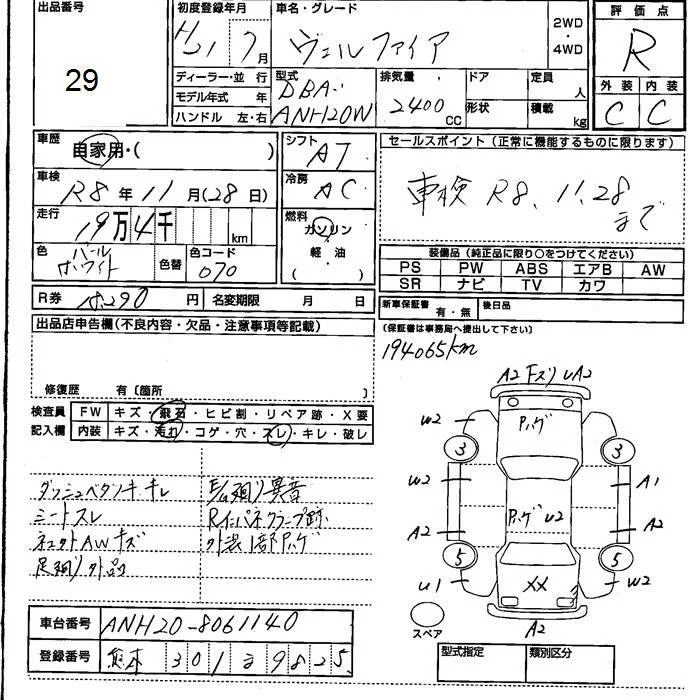 出品番号
29
初度登録年月
H21 7月
車名・グレード
ヴェルファイア
2WD
・
4WD
評価点
R
外装 内装
C C
ディーラー・並 行
モデル年式 年
ハンドル 左・右
型式
DBA-
ANH20W
排気量
2400
CC
ドア
形状
定員
人
積載
kg
車歴
自家用・( )
シフト
AT
セールスポイント(正常に機能するものに限ります)
車検 R8.11.28
まで
車検
R8年11月(28日)
冷房
AC
走行
19万4千
km
燃料
ガソリン
軽・油
・( )
色
パール
ホワイト
色替
色コード
070
装備品(純正品に限り○をつけてください)
PS PW ABS エアB AW
SR ナビ TV カワ
R券
円
名変期限 月 日
新車保証書
有・無
後日品
(保証書は事務局へ提出して下さい)
出品店申告欄(不良内容・欠品・注意事項等記載)
194065km
修復歴 有〔箇所 〕
検査員
記入欄
FW キズ・飛石・ヒビ割・リペア跡・X要
内装 キズ・汚れ・コゲ・穴・スレ・キレ・破レ
A2 UA2
W2
ハゲ
3
3
W2
A1
ハゲ U2
A2
A2
5
5
U1
XX
W2
A2
スペア
シートスレ
AWキズ
異音
外装1部ハゲ
足廻り外品
車台番号
ANH20-8061140
登録番号
熊本 301 9825
型式指定
類別区分